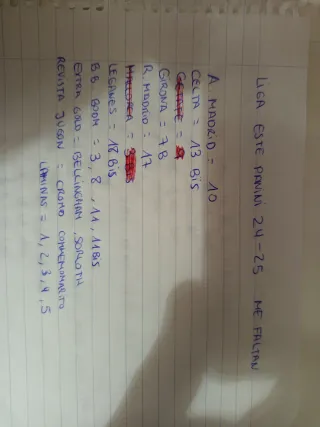 LIGA ESTE PANINI 24-25 ME FALTAN
A. MADRID = 10
CELTA = 13 BIS
GETAFE =
GIRONA = 7 B
R. MADRID = 17
MALLORCA =
LEGANES = 18 BIS
B.B. BOOM = 3, 8, 11, 11 BIS
EXTRA GOLD = BELLINGHAM, SORLOTH
REVISTA JUGON = CROMO CONMEMORATIVO
LAMINAS = 1, 2, 3, 4, 5